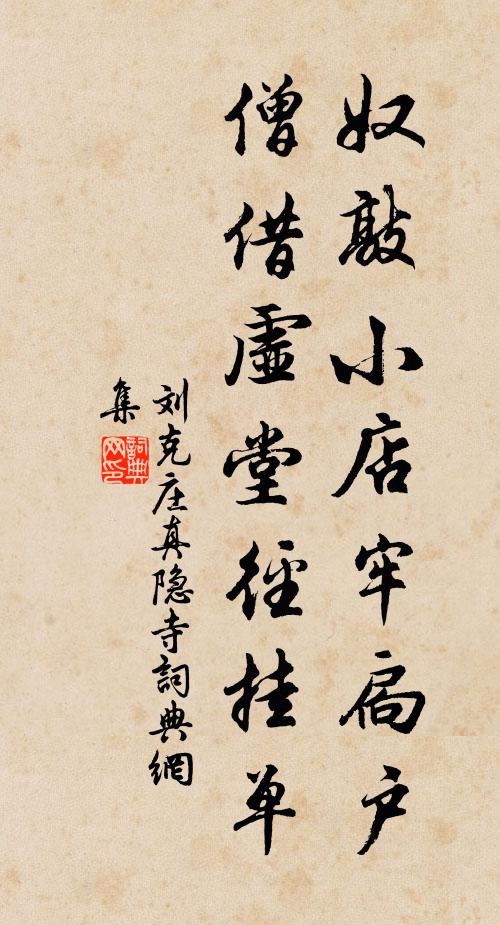 奴敲小店牢扃户
僧借虚堂径挂单
刘克庄真隐寺詞典網
集
詞典網印